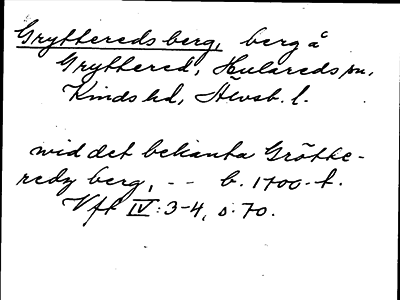 Gryttereds berg, berg å
Gryttered, Hulareds sn,
Kinds hd, Älvsb. l.
wid det bekanta Grötke-
redz berg, -- b. 1700-t.
Vft IV:3-4, s. 70.